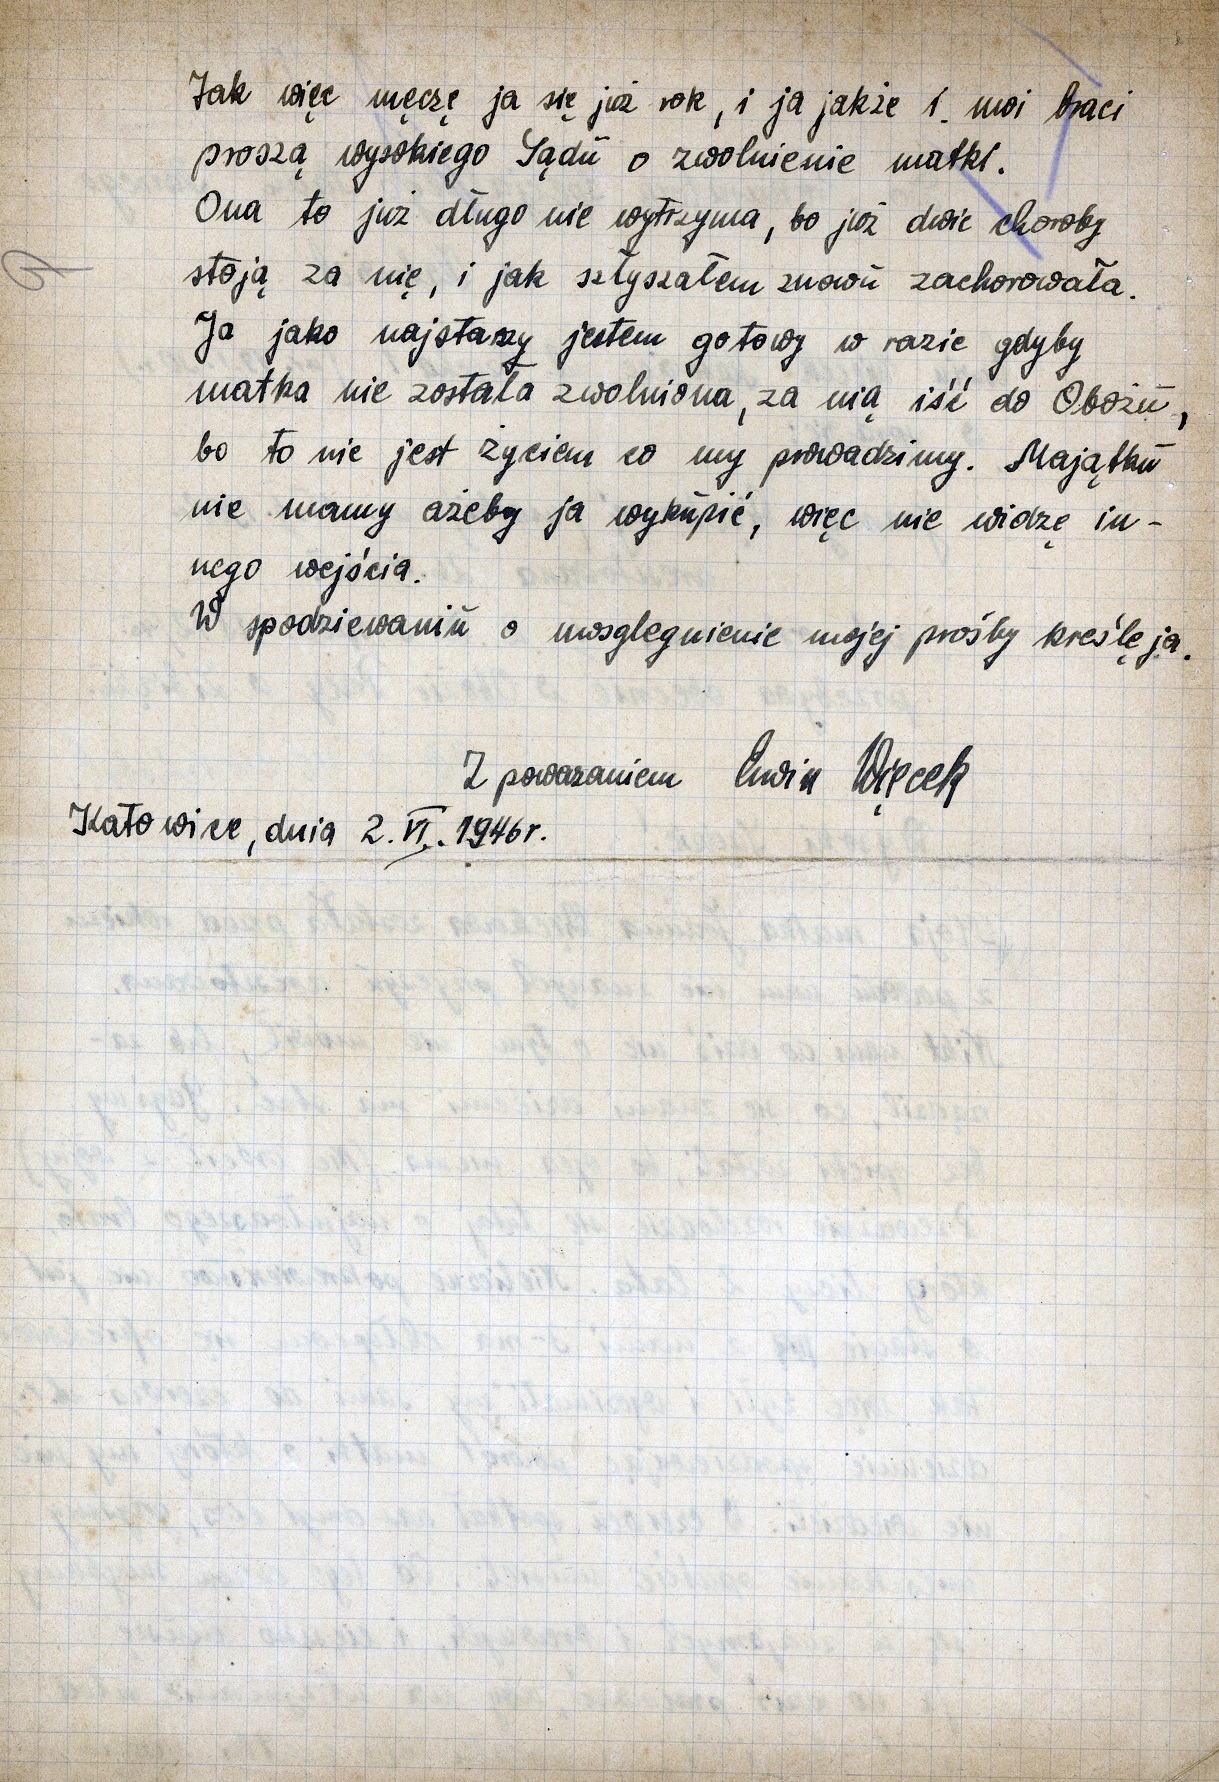 Jak więc męczę ja się już rok, i ja jakże i. moi braci
proszą wysokiego Sądu o zwolnienie matki.
Ona to już długo nie wytrzyma, bo już dwie choroby
stoją za nię, i jak sztyszałem znowu zachorowała.
Ja jako najstarzy jestem gotowy w razie gdyby
matka nie została zwolniona, za nią iść do Obozu,
bo to nie jest życiem co my prowadzimy. Majątku
nie mamy ażeby ja wykupić, więc nie widzę in-
nego wejścia.
W spodziewaniu o uwsglegnienie mojej prośby kreślę ja.
Z powarzaniem Erwin Więcek
Katowice, dnia 2. VI. 1946 r.